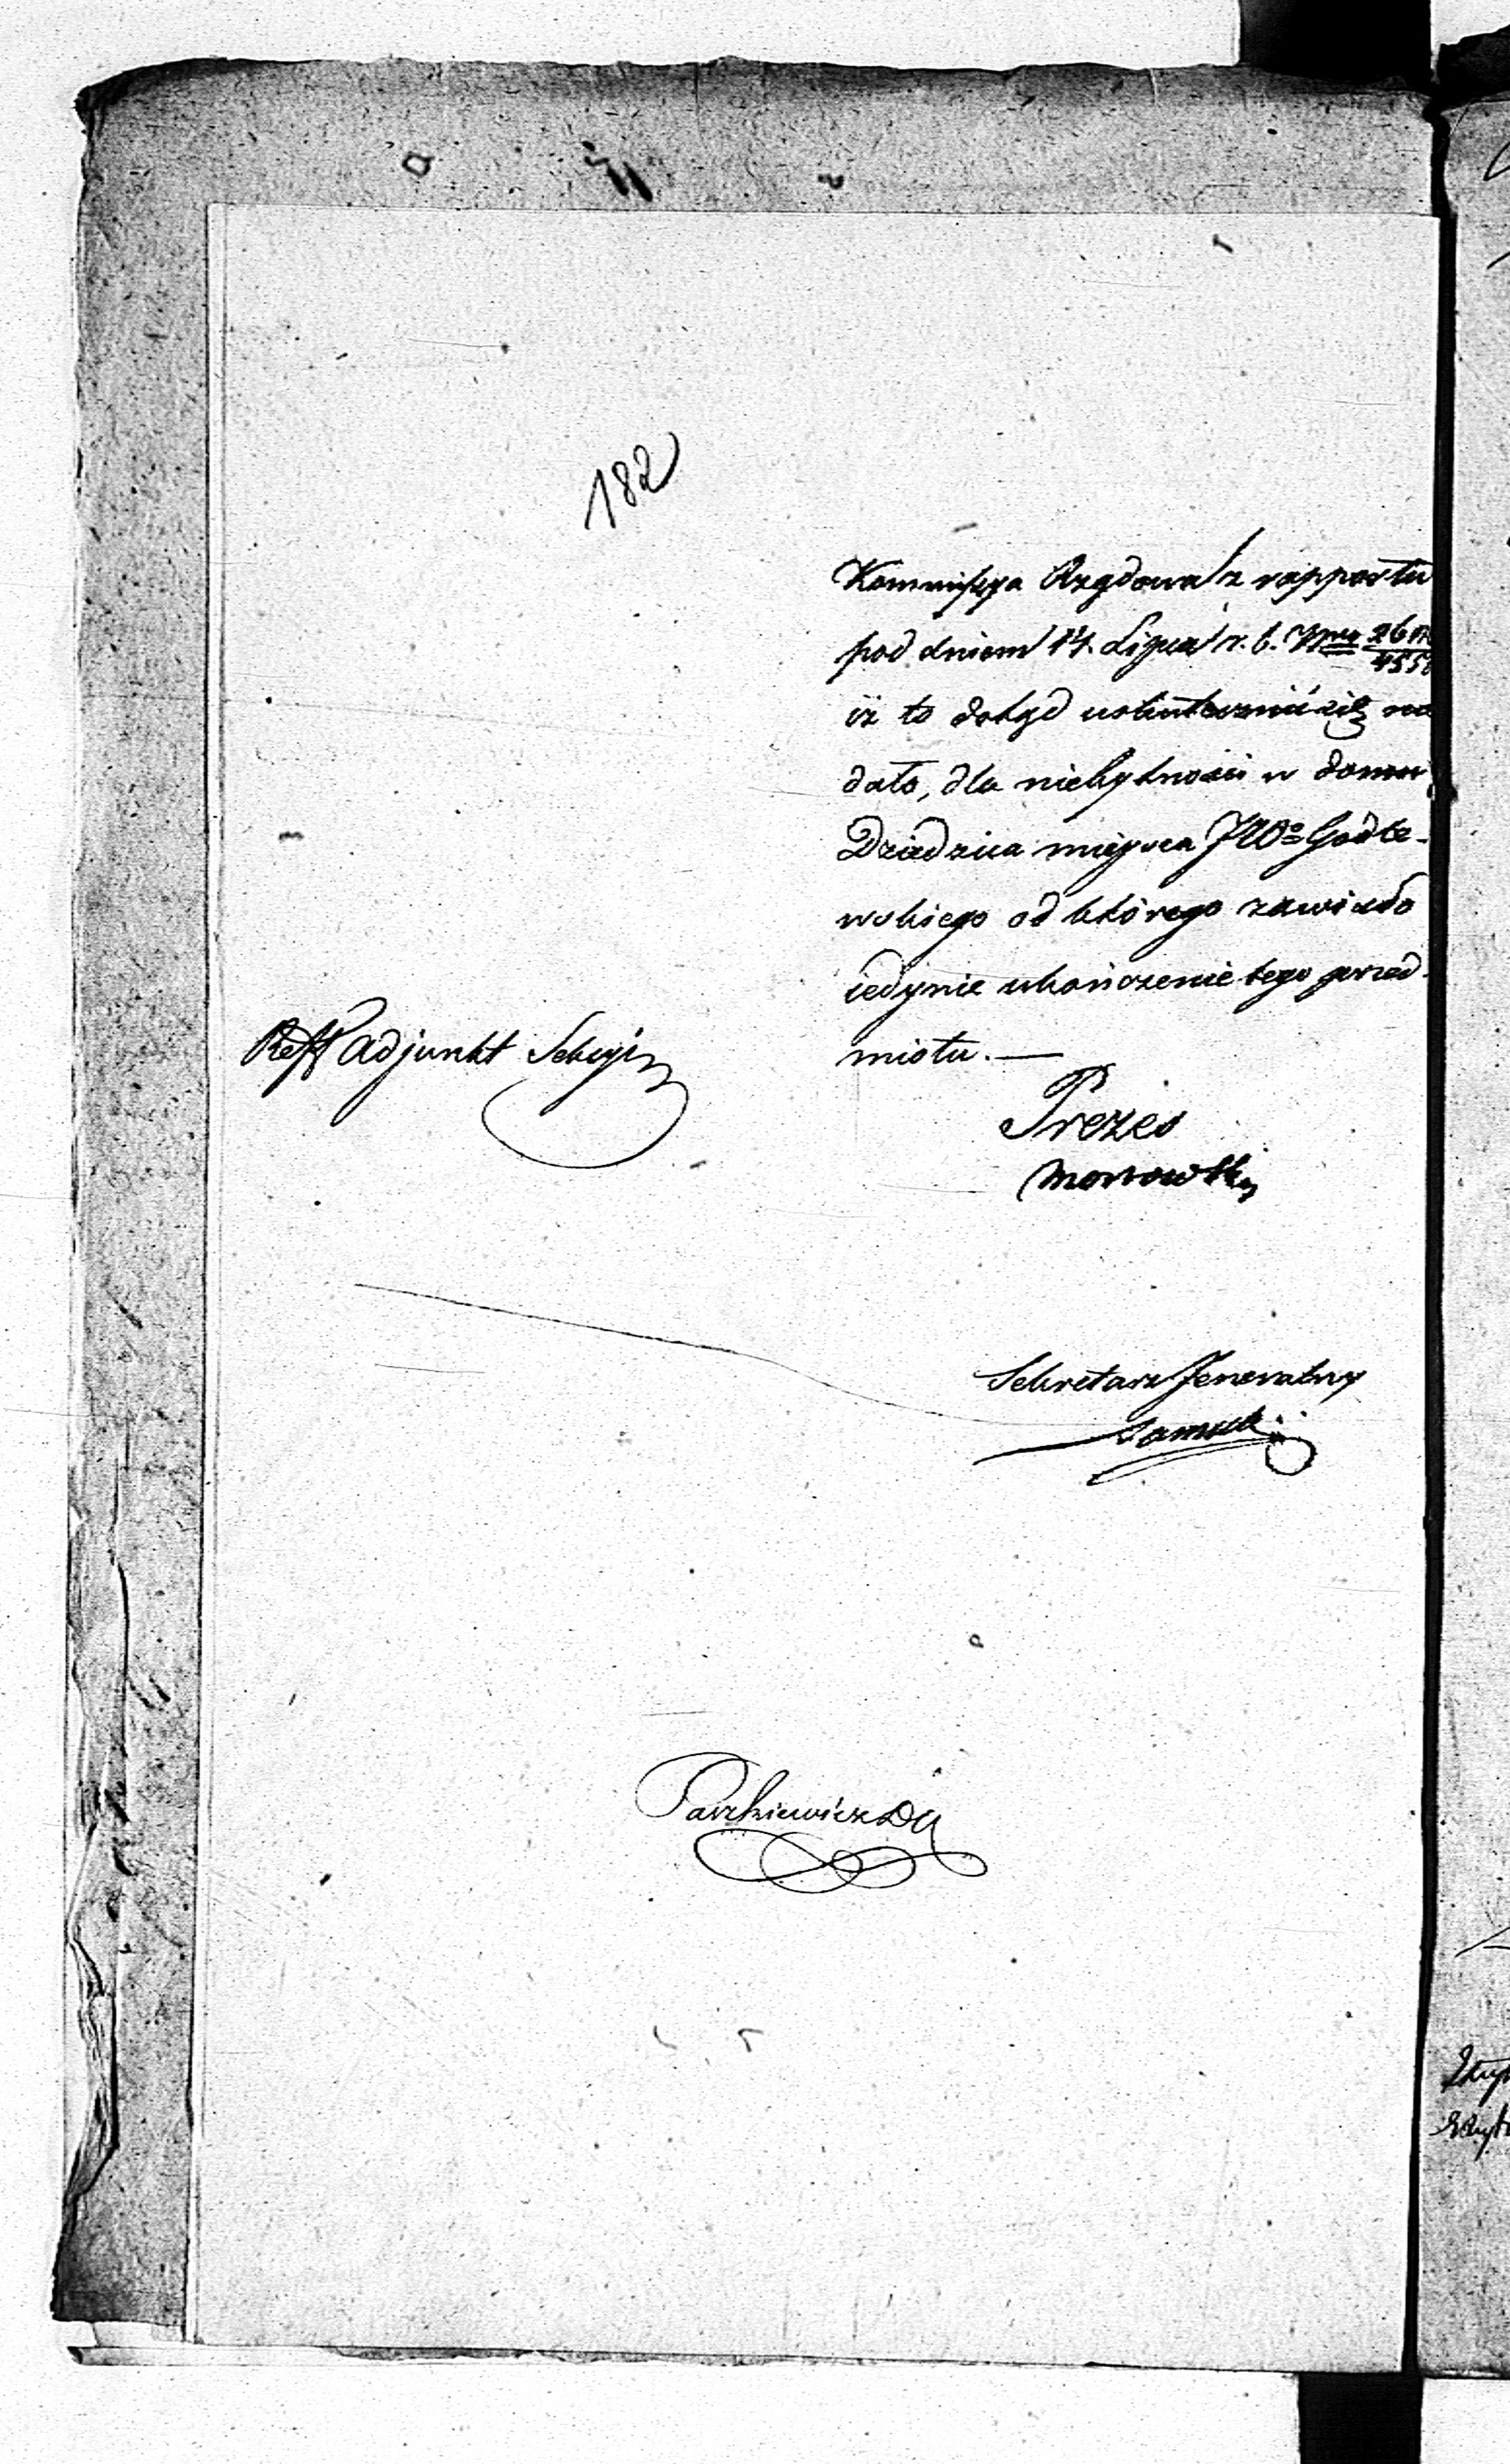 182
Kommissya Rządowa z rapportu
pod dniem 14. Lipca r. b. Nro
iż to dotąd uskutecznić się nie
dało, dla niebytności w domu
Dziedzica mieysca JWo Godle-
wskiego od którego zawisło
iedynie ukończenie tego przed-
miotu. —
Reff Adjunkt Sekcyi
Prezes
Sekretarz Jeneralny
Paszkiewicz